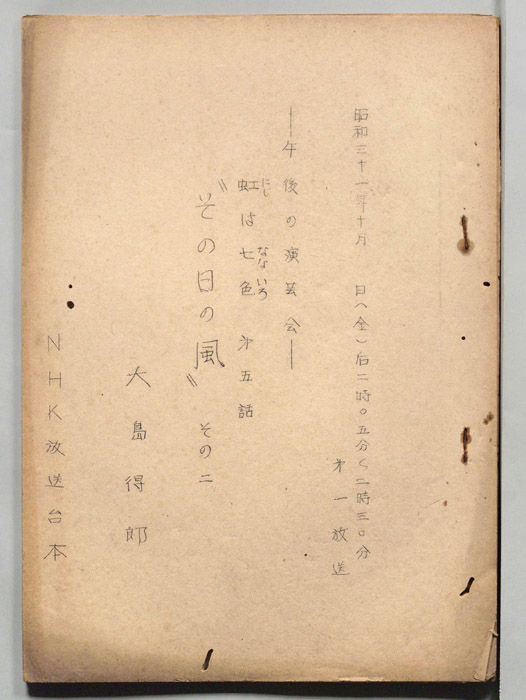 昭和三十一年十月　日（金）后二時〇五分〜二時三〇分
才一放送
―午後の演芸会―
虹は七色　才五話
にじ　なないろ
〝その日の風〟その二
大島得郎
NHK放送台本